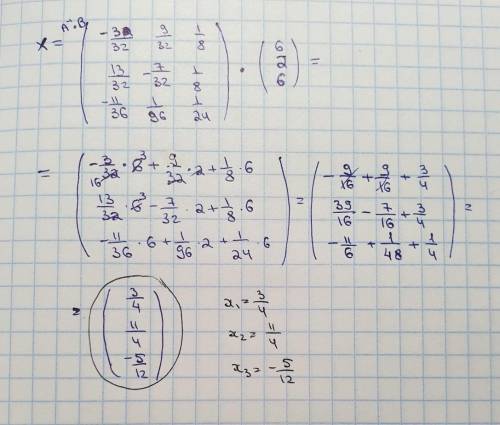 x = A⁻¹·B = ( -3/32 9/32 1/8
13/32 -7/32 1/8
-11/36 1/96 1/24 ) · ( 6 2 6 ) =
= ( -3/32 · 6 + 9/32 · 2 + 1/8 · 6
13/32 · 6 - 7/32 · 2 + 1/8 · 6
-11/36 · 6 + 1/96 · 2 + 1/24 · 6 ) = ( -9/16 + 9/16 + 3/4
39/16 - 7/16 + 3/4
-11/6 + 1/48 + 1/4 ) =
= ( 3/4
11/4
-5/12 )
x₁ = 3/4
x₂ = 11/4
x₃ = -5/12